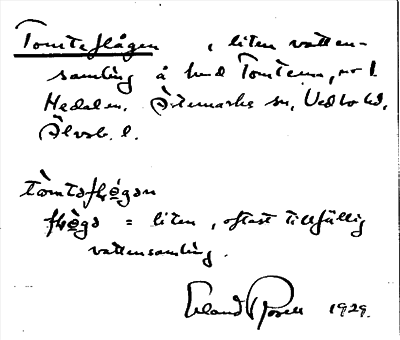 Tomteflågen, liten vatten-
samling å hmd Tomten, nr 1
Hedalen. Ärtemarks sn, Vedbo hd,
Älvsb. l.
tòmtəflǫ̀gən
flǫ̀gə = liten, oftast tillfällig
vattensamling.
Erland Rosell 1929.